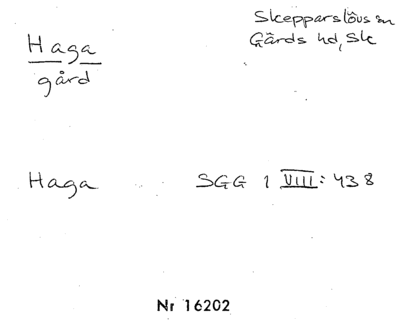 Haga
gård
Skepparslövs sn
Gärds hd, Sk
Haga SGG 1 VIII: 438
Nr 16202